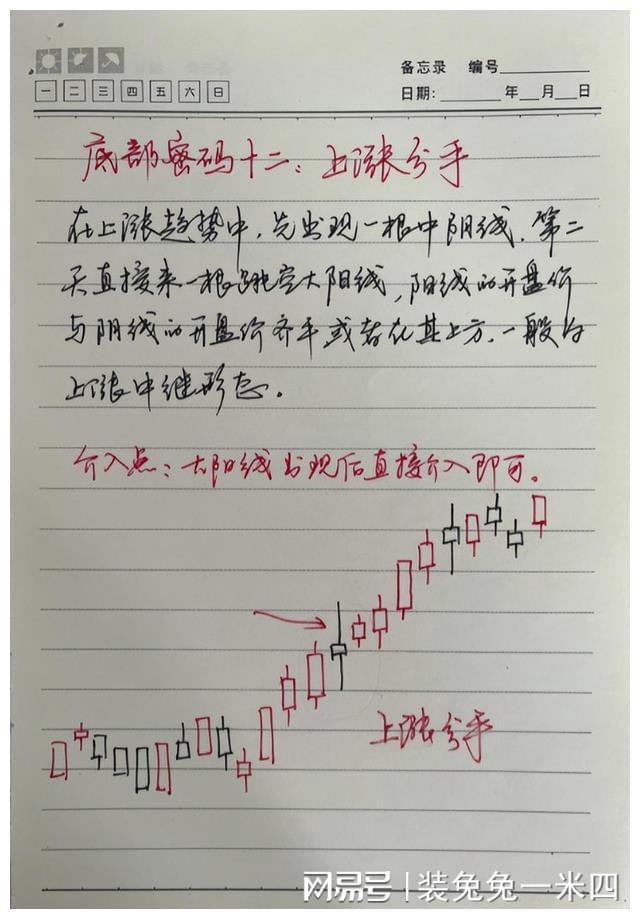 备忘录 编号
一 二 三 四 五 六 日
日期: 年 月 日
底部密码十二：上涨分手
在上涨趋势中，先出现一根中阴线，第二
天直接来一根跳空大阳线，阳线的开盘价
与阴线的开盘价齐平或者在其上方，一般为
上涨中继形态。
介入点：大阳线出现后直接介入即可。
上涨分手
网易号 | 装兔兔一米四